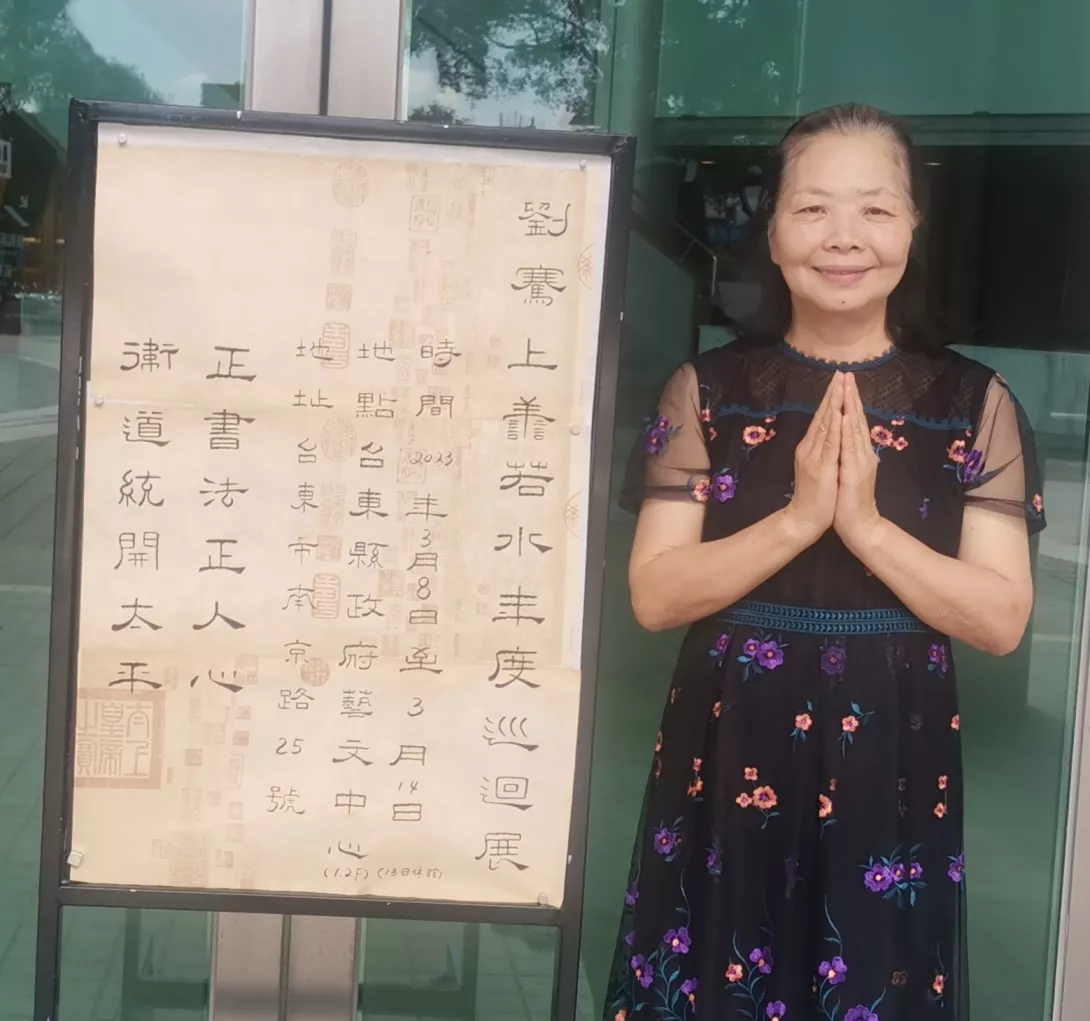 劉騫上善若水年度巡迴展
時間2023年3月8日至3月14日
(13日休館)
地點台東縣政府藝文中心
(1.2F)
地址台東市南京路25號
正書法正人心
衛道統開太平